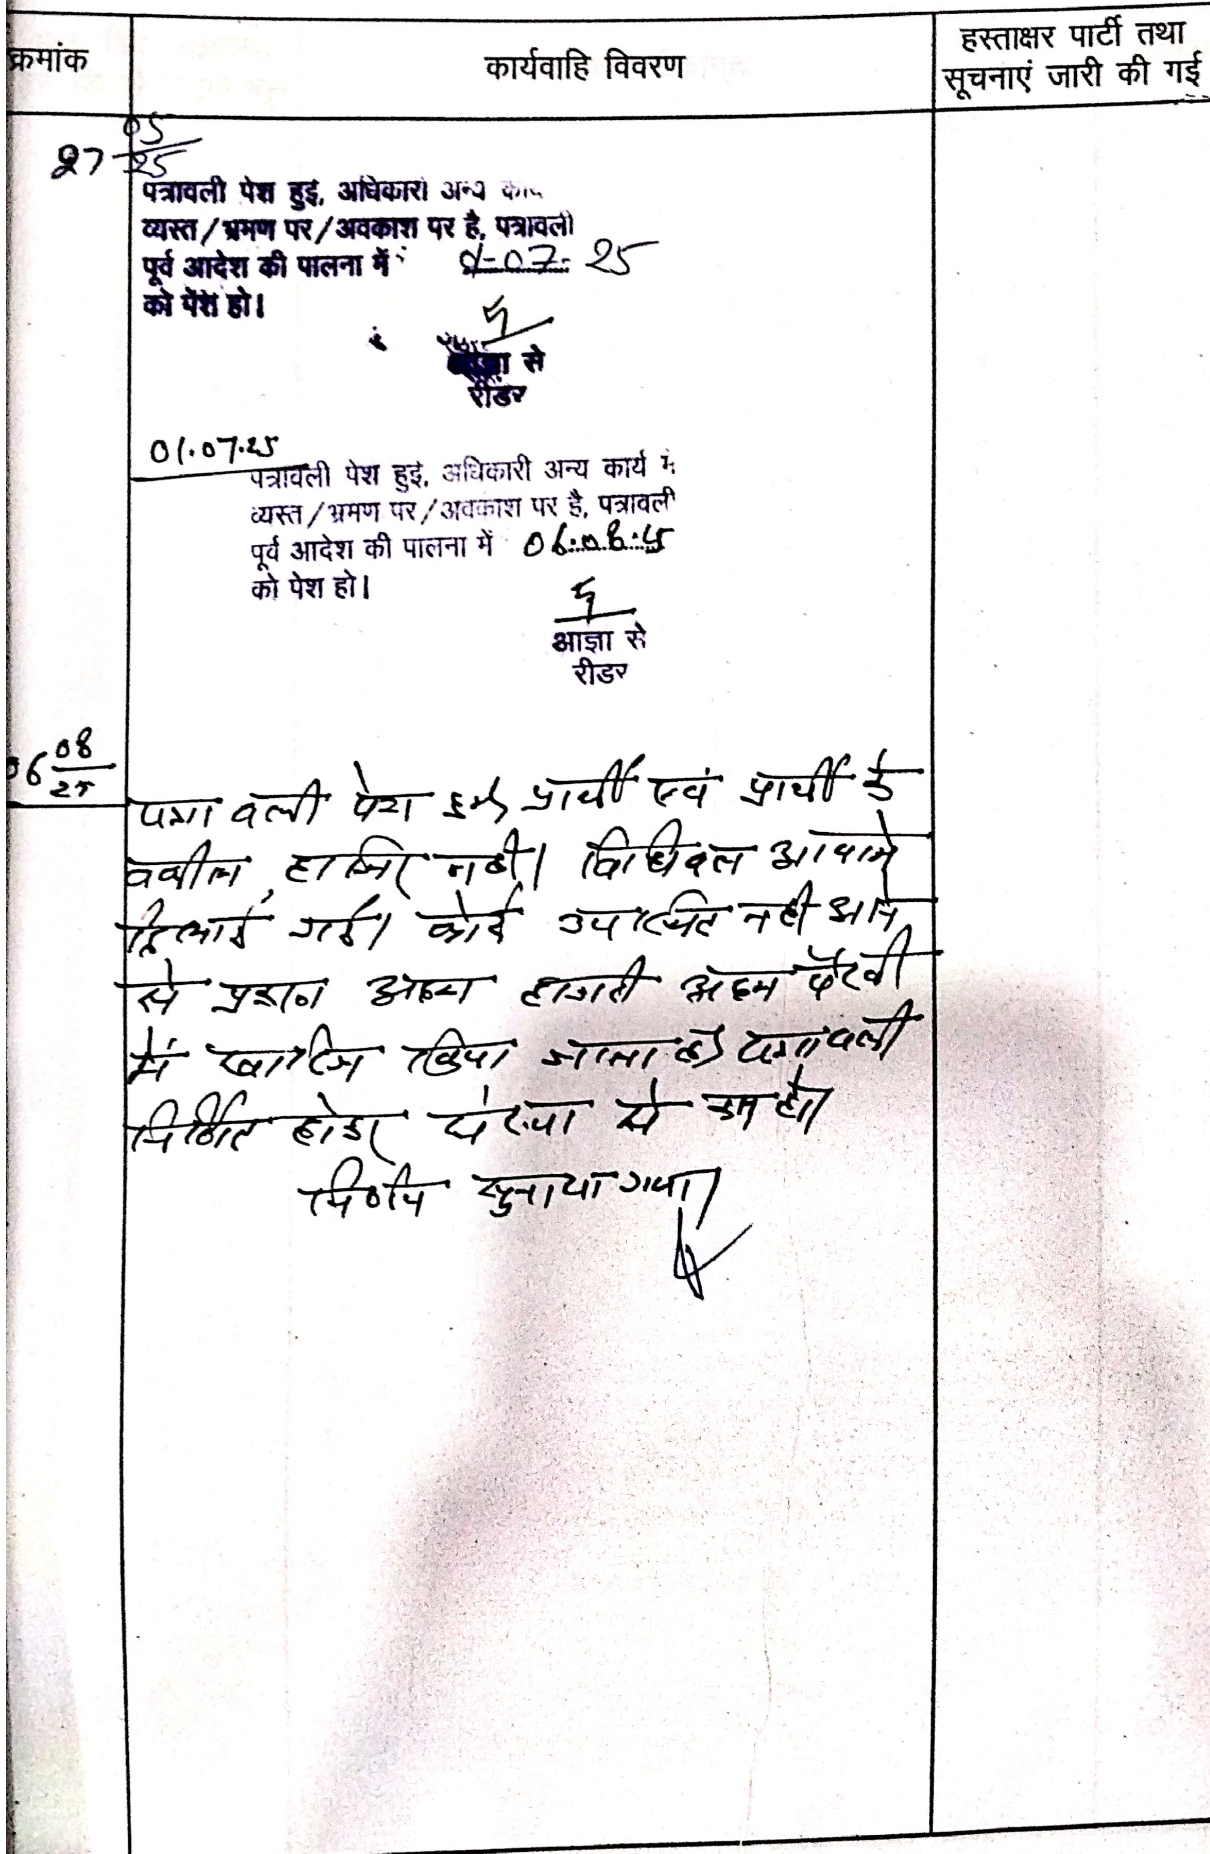 क्रमांक
कार्यवाहि विवरण
हस्ताक्षर पार्टी तथा
सूचनाएं जारी की गई
27 05/25
पत्रावली पेश हुई, अधिकारी अन्य
व्यस्त/भ्रमण पर/अवकाश पर है, पत्रावली
पूर्व आदेश की पालना में 1-07-25
को पेश हो।
से
रीडर
01.07.25
पत्रावली पेश हुई, अधिकारी अन्य कार्य में
व्यस्त/भ्रमण पर/अवकाश पर है, पत्रावली
पूर्व आदेश की पालना में 06.08.25
को पेश हो।
आज्ञा से
रीडर
06 08/25
पत्रावली पेश हुई। प्रार्थी एवं प्रार्थी के
वकील हाजिर नहीं। विधिवत आवाजे
दिलाई गई। कोई उपस्थित नहीं आने
से प्रकरण अदम हाजरी अदम पैरवी
में खारिज किया जाता है। पत्रावली
निर्णित होकर संख्या से कम हो।
निर्णय सुनाया गया।